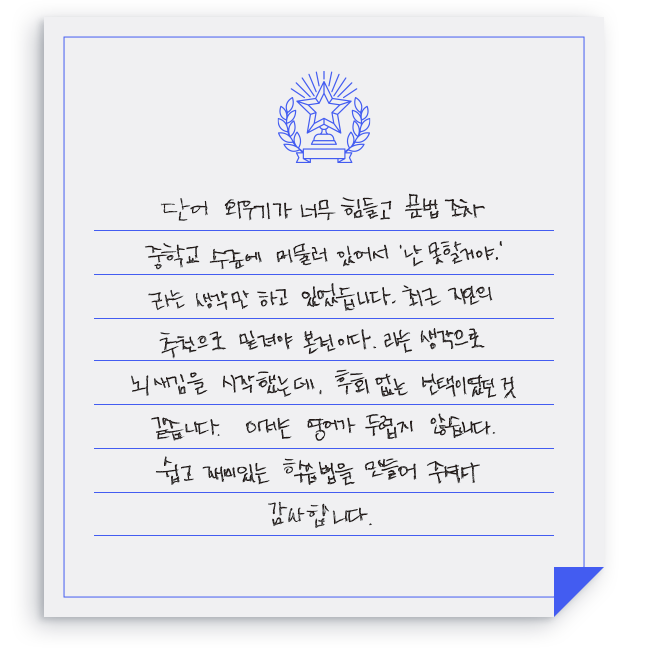 단어 외우기가 너무 힘들고 문법 조차
중학교 수준에 머물러 있어서 '난 못할거야.'
라는 생각만 하고 있었습니다. 최근 지인의
추천으로 밑져야 본전이다. 라는 생각으로
뇌새김을 시작했는데, 후회 없는 선택이었던 것
같습니다. 이제는 영어가 두렵지 않습니다.
쉽고 재미있는 학습법을 만들어 주셔서
감사합니다.